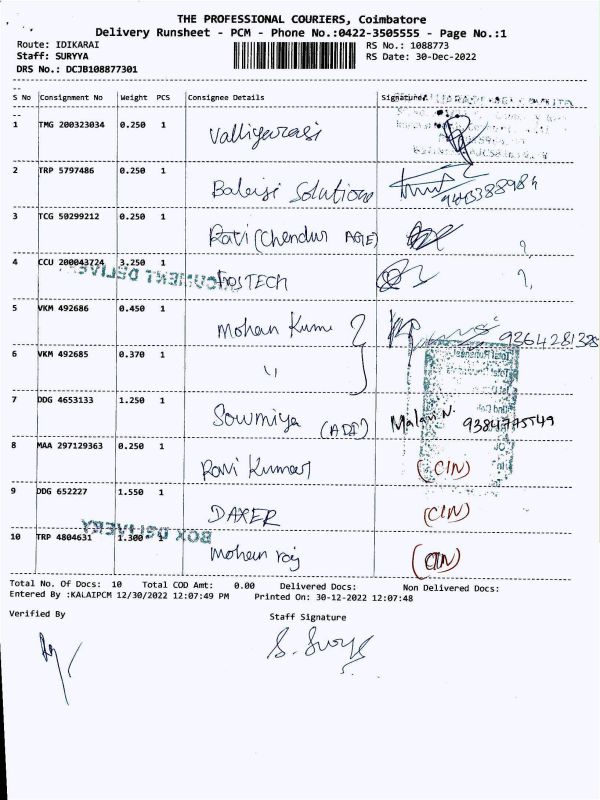 THE PROFESSIONAL COURIERS, Coimbatore
Delivery Runsheet - PCM - Phone No.:0422-3505555 - Page No.:1
Route: IDIKARAI
RS No.: 1088773
Staff: SURYYA
RS Date: 30-Dec-2022
DRS No.: DCJB108877301
S No Consignment No Weight PCS Consignee Details Signature
1 TMG 200323034 0.250 1 Valliyarasi
2 TRP 5797486 0.250 1 Solutions
3 TCG 50299212 0.250 1 (Chendur
4 CCU 200043724 3.250 1
DOCUMENT DELIVERY
5 VKM 492686 0.450 1 Mohan Kumar 9364281328
6 VKM 492685 0.370 1 "
7 DDG 4653133 1.250 1 Sowmiya Malar.N. 9384775549
8 MAA 297129363 0.250 1 Ravi Kumar (CIN)
9 DDG 652227 1.550 1 DAXER (CIN)
BOX DELIVERY
10 TRP 4804631 1.300 1 Mohan raj (CIN)
Total No. Of Docs: 10 Total COD Amt: 0.00 Delivered Docs: Non Delivered Docs:
Entered By :KALAIPCM 12/30/2022 12:07:49 PM Printed On: 30-12-2022 12:07:48
Verified By Staff Signature
S. Surya